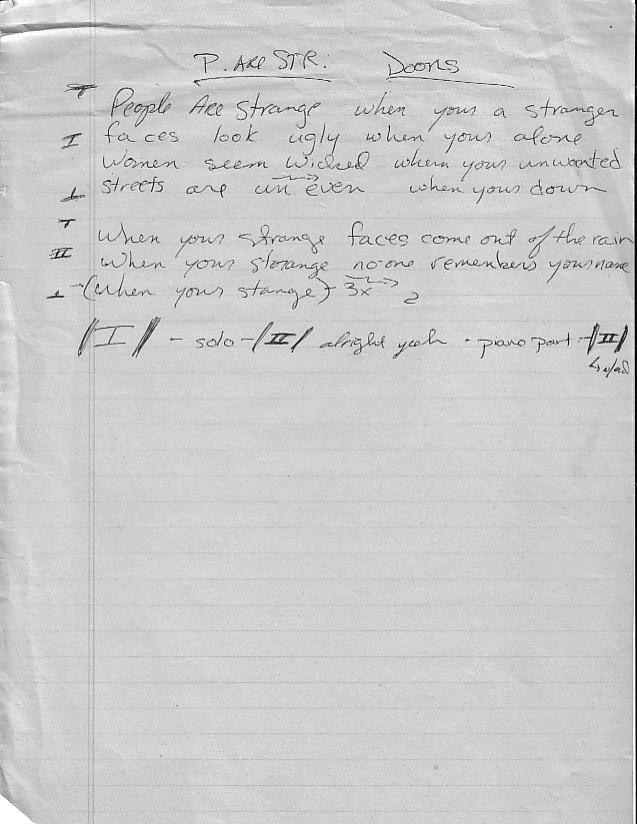 P. ARE STR. Doors
People Are Strange when your a stranger
I faces look ugly when your alone
Women seem wicked when your unwanted
streets are uneven when your down
When your strange faces come out of the rain
II When your storange no one remembers your name
(When your stange) 3x 2
|I| - solo - |II| alright yeah - piano part - |II|